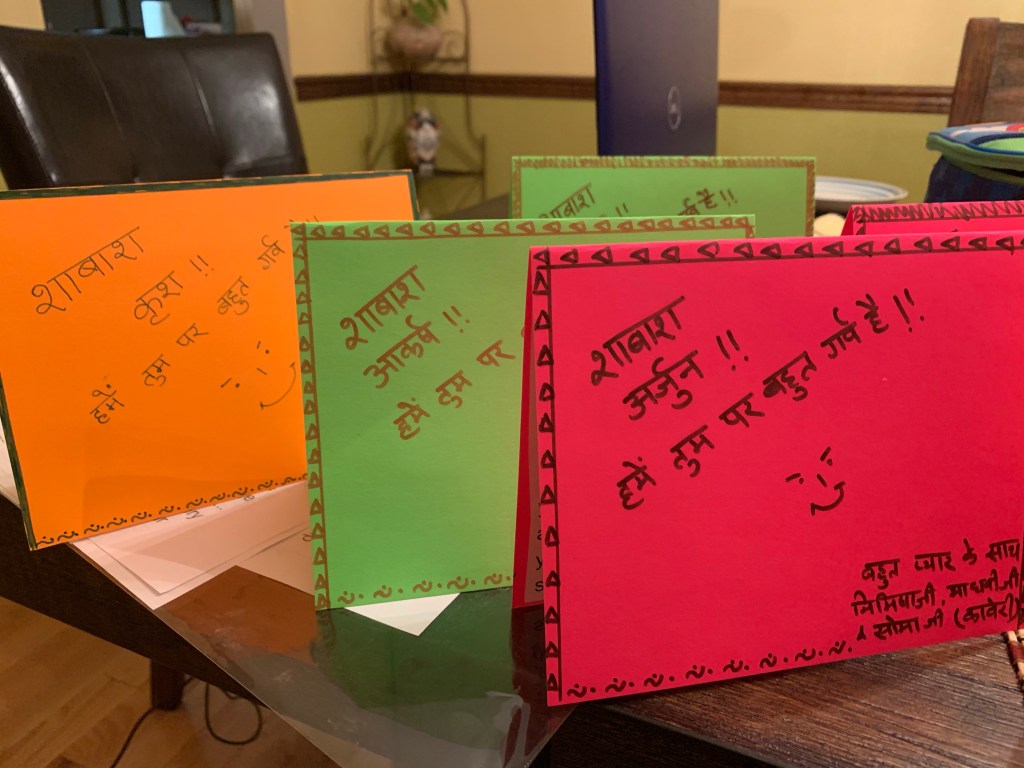 शाबाश
कृश !!
हमें तुम पर बहुत गर्व
शाबाश
आकर्ष !!
हमें तुम पर
शाबाश
गर्व है !!
शाबाश
अर्जुन !!
हमें तुम पर बहुत गर्व है !!
बहुत प्यार के साथ
माधवीजी
सोमाजी (कावेरी)
DELL